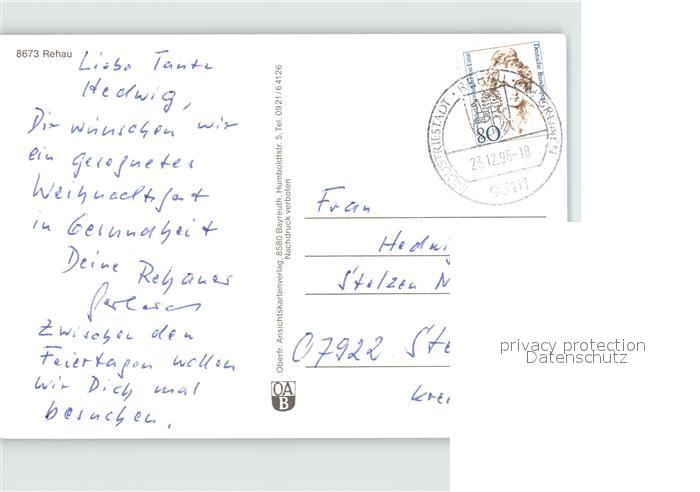 8673 Rehau
Liebe Tante
Hedwig,
Dir wünschen wir
ein gesegnetes
Weihnachtsfest
in Gesundheit
Deine Rehauer
Zwischen den
Feiertagen wollen
wir Dich mal
besuchen.
Oberfr. Ansichtskartenverlag, 8580 Bayreuth, Humboldtstr. 5, Tel. 0921/64126
Nachdruck verboten
OA
B
Deutsche Bundespost
80
INDUSTRIESTADT
23.12.96-18
95111
Frau
Hedwi
Stelzen N
07922 Ste
Krei
privacy protection
Datenschutz